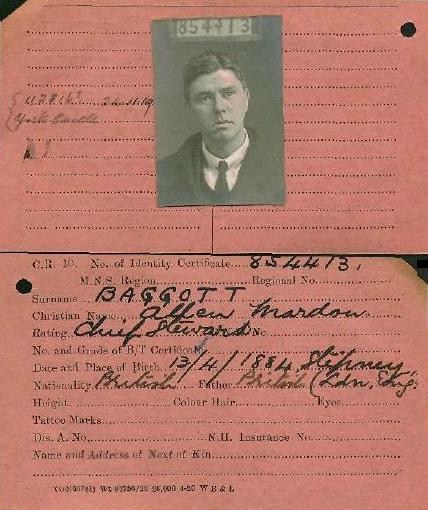 854413
118161 26.11.19
York Castle
C.R. 10. No. of Identity Certificate 854413.
M.N.S. Region Regional No.
Surname BAGGOTT
Christian Name Mardon
Rating Chief Steward No.
No. and Grade of B/T Certificate
Date and Place of Birth 13/4/1884 Stepney,
Nationality British Father British (Ldn, Eng.
Height Colour Hair Eyes
Tattoo Marks
Dis. A. No. N.H. Insurance No.
Name and Address of Next of Kin
26,000 4-20 W B & L